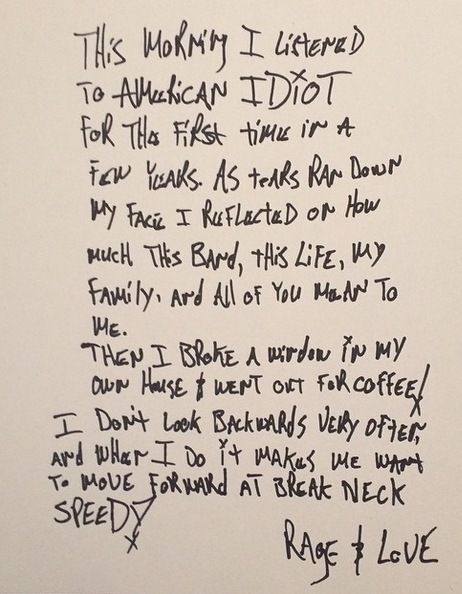 THIS MORNING I LISTENED
TO AMERICAN IDIOT
FOR THE FIRST TIME IN A
FEW YEARS. AS TEARS RAN DOWN
MY FACE I REFLECTED ON HOW
MUCH THIS BAND, THIS LIFE, MY
FAMILY, AND ALL OF YOU MEAN TO
ME.
THEN I BROKE A WINDOW IN MY
OWN HOUSE & WENT OUT FOR COFFEE!
I DON'T LOOK BACKWARDS VERY OFTEN,
AND WHEN I DO IT MAKES ME WANT
TO MOVE FORWARD AT BREAK NECK
SPEED!
RAGE & LOVE